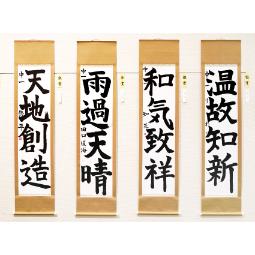 温故知新
和気致祥
雨過天晴
天地創造